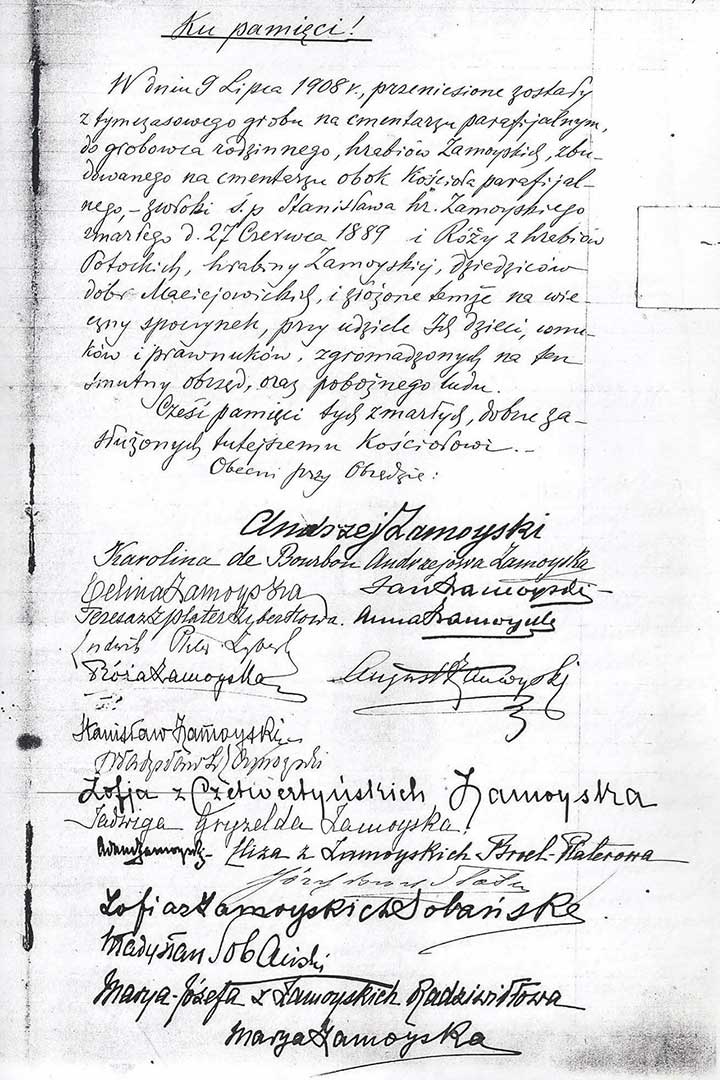 Ku pamięci!
W dniu 9 Lipca 1908 r., przeniesione zostały
z tymczasowego grobu na cmentarzu parafijalnym,
do grobowca rodzinnego, hrabiów Zamoyskich, zbu-
dowanego na cmentarzu obok Kościoła parafijal-
nego, - zwłoki ś.p Stanisława hr. Zamoyskiego
zmarłego d. 27 Czerwca 1889 i Róży z hrabiów
Potockich, hrabiny Zamoyskiej, dziedziców
dóbr Maciejowickich, i złożone temże na wie-
czny spoczynek, przy udziele Ich dzieci, wnu-
ków i prawnuków, zgromadzonych na ten
smutny obrzęd, oraz pobożnego ludu.
Cześć pamięci tych zmarłych, dobrze za-
służonych tutejszemu Kościołowi. -
Obecni przy Obrzędzie:
Andrzej Zamoyski
Karolina de Bourbon Andrzejowa Zamoyska
Celina Zamoyska Jan Zamoyski
Teresa z Zyberktowa. Anna Zamoyska
Ludwik Plater Zyberk
Róża Zamoyska August Zamoyski
Stanisław Zamoyski
Władysław Zamoyski
Zofja z Czetwertyńskich Zamoyska
Jadwiga Gryzelda Zamoyska.
Adam Zamoyski - Eliza z Zamoyskich Broel-Platerowa
Józef
Zofia z Zamoyskich Sobańska
Władysław Sobański
Marya-Józefa z Zamoyskich Radziwiłłowa
Marya Zamoyska